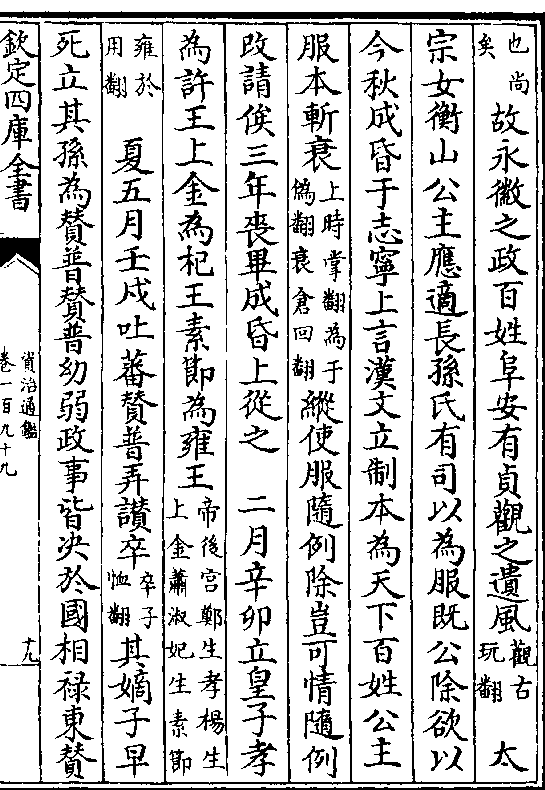 也尚
矣
故永徽之政百姓阜安有貞觀之遺風
觀古
玩翻
太
宗女衡山公主應適長孫氏有司以為服既公除欲以
今秋成昏于志寧上言漢文立制本為天下百姓公主
服本斬衰
上時掌翻為于
偽翻衰倉回翻
縱使服隨例除豈可情隨例
改請俟三年喪畢成昏上從之　二月辛卯立皇子孝
為許王上金為杞王素節為雍王
帝後宮鄭生孝楊生
上金蕭淑妃生素節
雍於
用翻
夏五月壬戌吐蕃賛普弄讃卒
卒子
恤翻
其嫡子早
死立其孫為賛普賛普幼弱政事皆決於國相禄東賛
欽定四庫全書
資治通鑑
卷一百九十九
十九